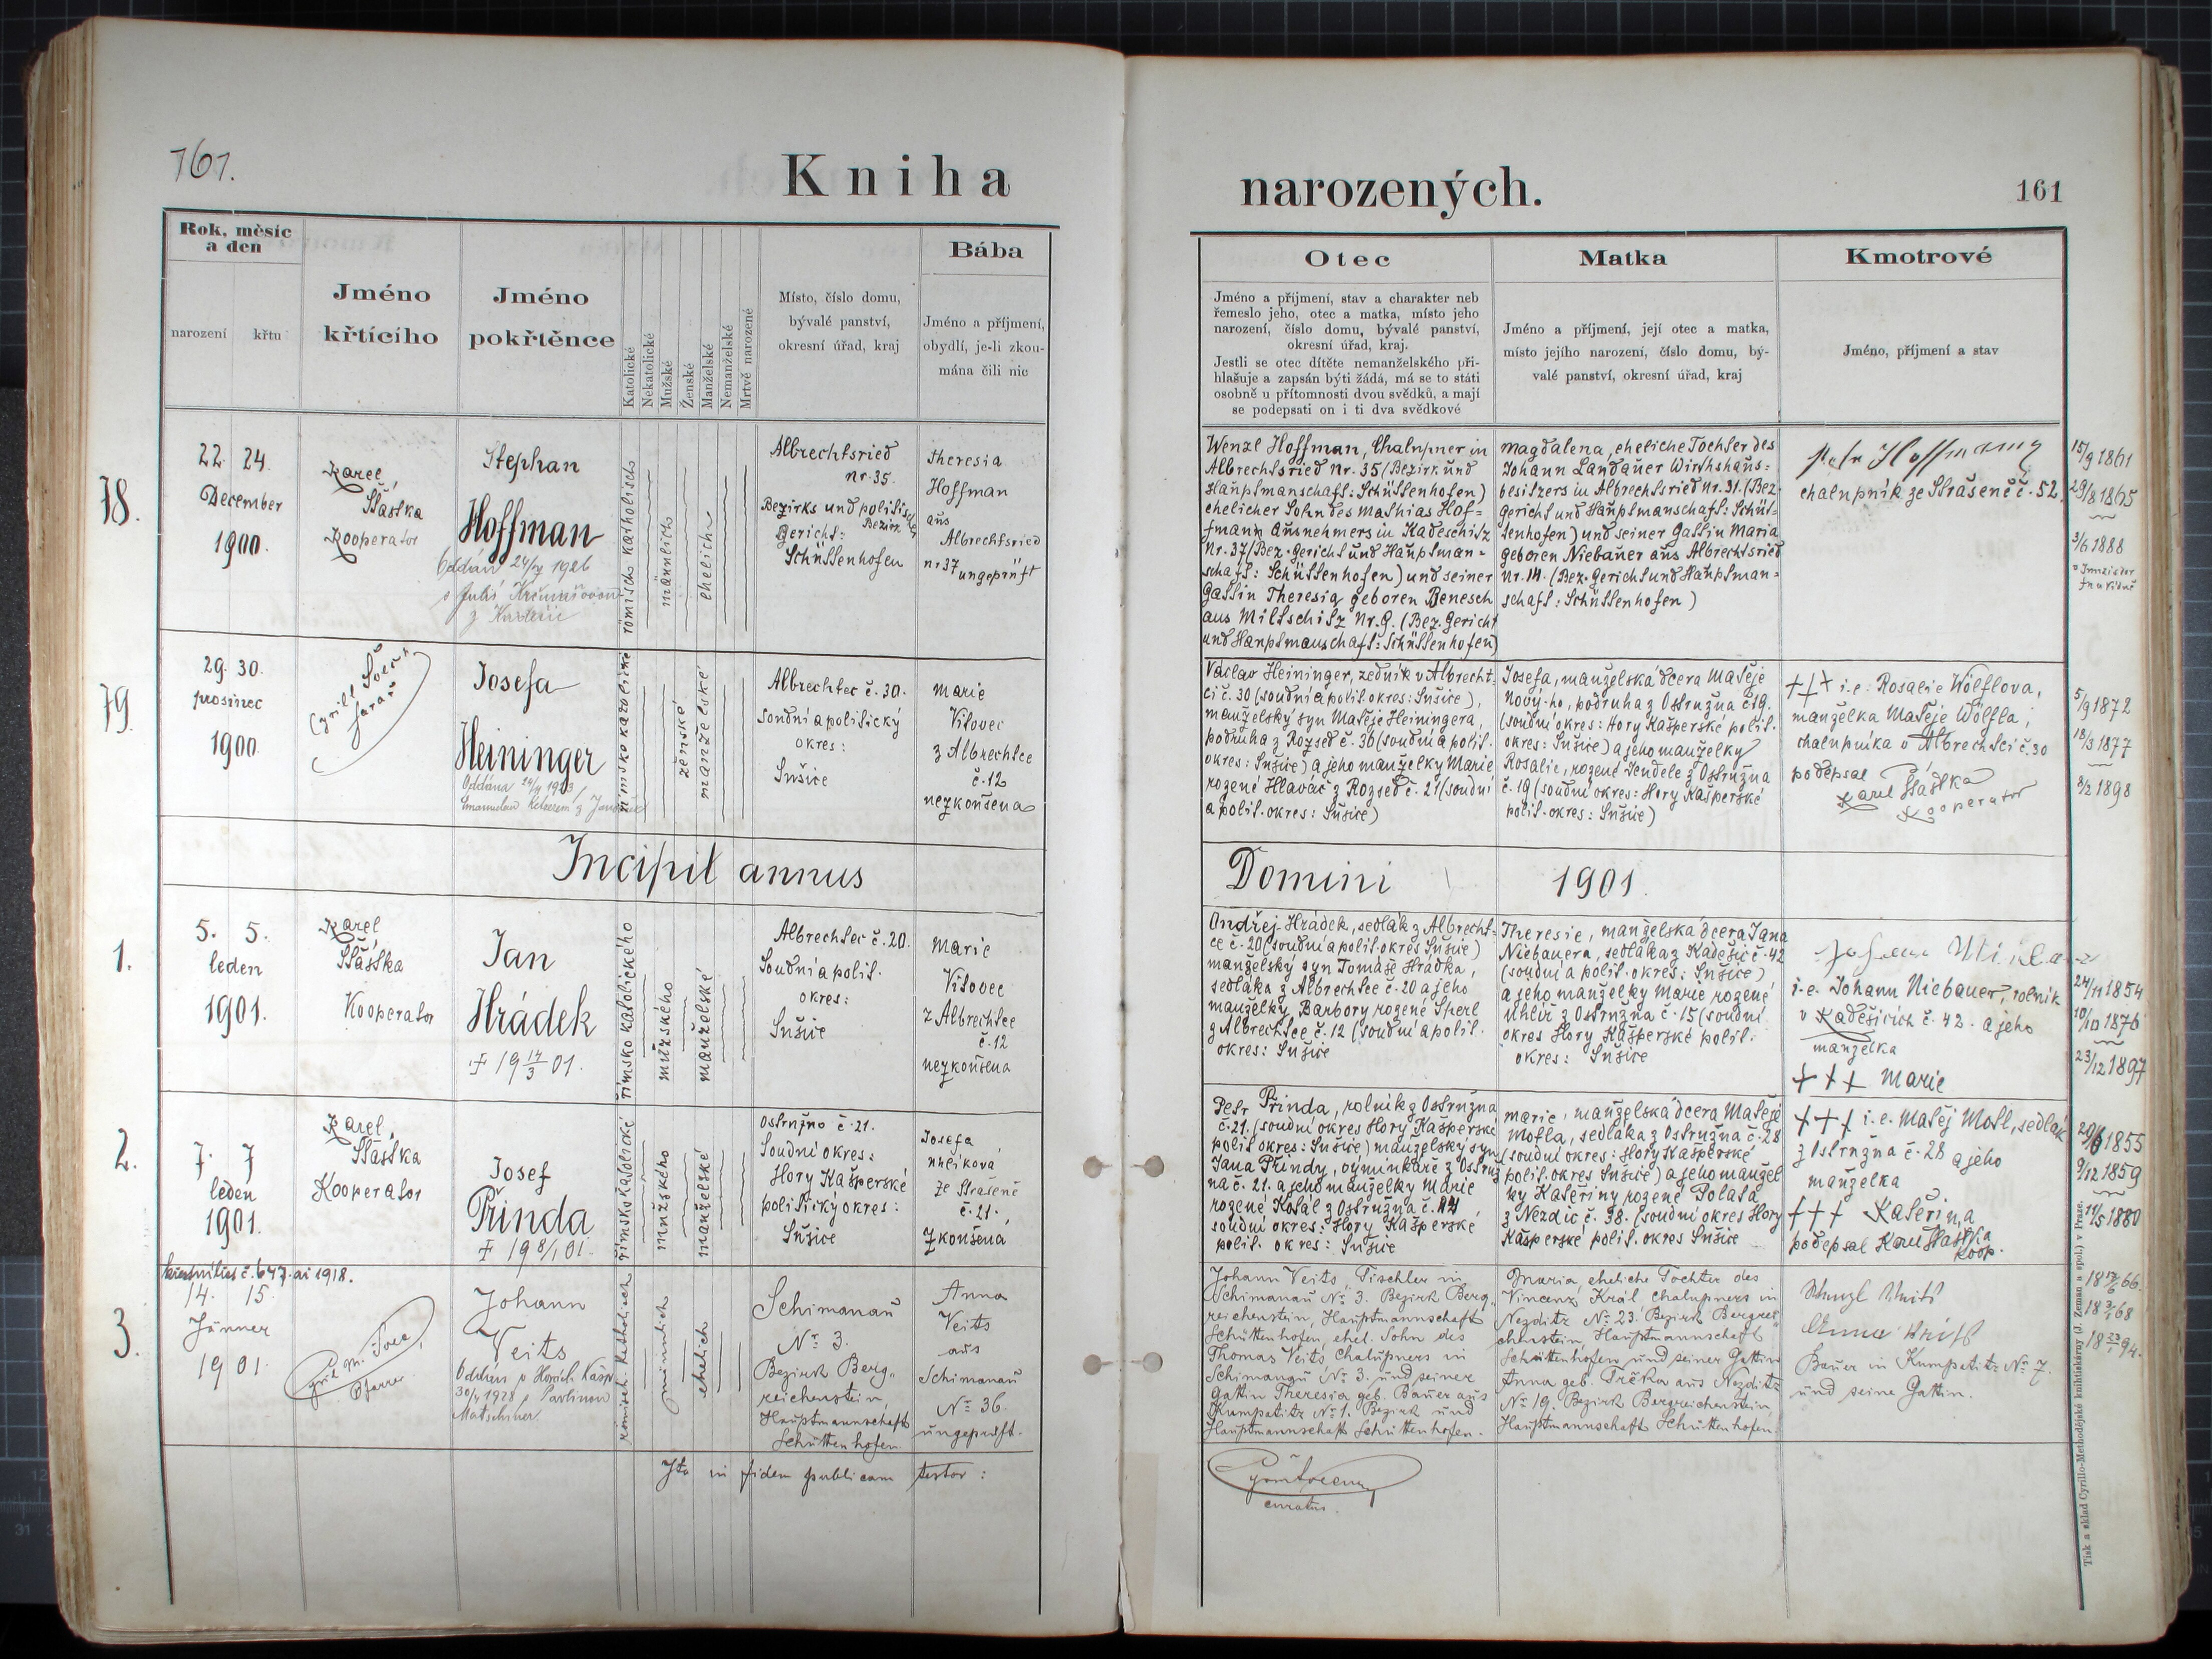 161.
Kniha
narozených.
161
Rok, měsíc
a den
narození
křtu
Jméno
křtícího
Jméno
pokřtěnce
Katolické
Nekatolické
Mužské
Ženské
Manželské
Nemanželské
Mrtvě narozené
Místo, číslo domu,
bývalé panství,
okresní úřad, kraj
Bába
Jméno a příjmení,
obydlí, je-li zkou-
mána čili nic
Otec
Jméno a příjmení, stav a charakter neb
řemeslo jeho, otec a matka, místo jeho
narození, číslo domu, bývalé panství,
okresní úřad, kraj.
Jestli se otec dítěte nemanželského při-
hlašuje a zapsán býti žádá, má se to státi
osobně u přítomnosti dvou svědků, a mají
se podepsati on i ti dva svědkové
Matka
Jméno a příjmení, její otec a matka,
místo jejího narození, číslo domu, bý-
valé panství, okresní úřad, kraj
Kmotrové
Jméno, příjmení a stav
78.
22. 24.
December
1900.
Karel
Šťastka
Kooperator
Stephan
Hoffman
Oddán 1926
z Kadešic
römisch katholisch
männlich
ehelich
Albrechtsried
Nr. 35.
Bezirks und politisches
Bezirk
Gericht:
Schüttenhofen
Theresia
Hoffman
aus
Albrechtsried
nr 37 ungeprüft
Wenzl Hoffman, Chalupner in
Albrechtsried Nr. 35 (Bezirk und
Hauptmanschaft: Schüttenhofen)
ehelicher Sohn des Mathias Hof=
fmann Ausnehmers in Kadeschitz
Nr. 37 (Bez. Gericht und Hauptman=
schaft: Schüttenhofen) und seiner
Gattin Theresia geboren Benesch
aus Miltschitz Nr. 9. (Bez. Gericht
und Hauptmanschaft: Schüttenhofen)
Magdalena, eheliche Tochter des
Johann Landauer Wirthshaus=
besitzers in Albrechtsried Nr. 31. (Bez.
Gericht und Hauptmanschaft: Schüt-
tenhofen) und seiner Gattin Maria
geboren Niebauer aus Albrechtsried
Nr. 14. (Bez. Gericht und Hauptman=
schaft: Schüttenhofen)
Hoffmann
chalupník ze Strašeně č. 52.
15/9 1861
29/8 1865
3/6 1888
79.
29. 30.
prosinec
1900.
Cyrill Švec
farář
Josefa
Heininger
Oddána 1923
římsko katolické
ženské
manželské
Albrechtec č. 30.
soudní a politický
okres:
Sušice
Marie
Vítovec
z Albrechtce
č. 12
nezkoušena
Václav Heininger, zedník v Albrecht-
ci č. 30 (soudní a polit. okres: Sušice),
manželský syn Matěje Heiningera,
podruha z Rozsed č. 36 (soudní a polit.
okres: Sušice) a jeho manželky Marie
rozené Hlaváč z Rozsed č. 21 (soudní
a polit. okres: Sušice)
Josefa, manželská dcera Matěje
Nový-ho, podruha z Ostružna č. 19.
(soudní okres: Hory Kašperské polit.
okres: Sušice) a jeho manželky
Rosalie, rozené Jendele z Ostružna
č. 19 (soudní okres: Hory Kašperské
polit. okres: Sušice)
+++ i. e. Rosalie Wölflova,
manželka Matěje Wölfla,
chalupníka v Albrechtci č. 30
podepsal Karel Šťastka
Kooperator
5/9 1872
18/3 1877
8/2 1898
Incipit annus
Domini 1901.
1.
5. 5.
leden
1901.
Karel
Šťastka
Kooperator
Jan
Hrádek
+ 19 17/3 01.
římsko katolického
mužského
manželské
Albrechtec č. 20.
Soudní a polit.
okres:
Sušice
Marie
Vítovec
z Albrechtce
č. 12
nezkoušena
Ondřej Hrádek, sedlák z Albrecht-
ce č. 20 (soudní a polit. okres Sušice)
manželský syn Tomáše Hrádka,
sedláka z Albrechtce č. 20 a jeho
manželky Barbory rozené Šperl
z Albrechtce č. 12 (soudní a polit.
okres: Sušice
Theresie, manželská dcera Jana
Niebauera, sedláka z Kadešic č. 42
(soudní a polit. okres: Sušice)
a jeho manželky Marie rozené
Uhlíř z Ostružna č. 15 (soudní
okres Hory Kašperské polit.
okres: Sušice
i. e. Johann Niebauer, rolník
v Kadešicích č. 42. a jeho
manželka
+++ Marie
24/11 1854
10/10 1876
23/12 1897
2.
7. 7
leden
1901.
Karel
Šťastka
Kooperator
Josef
Přinda
+ 19 8/1 01.
římsko katolické
mužského
manželské
Ostružno č. 21.
Soudní okres:
Hory Kašperské
politický okres:
Sušice
Josefa
Uhlíková
ze Strašeně
č. 21.
Zkoušená
Petr Přinda, rolník z Ostružna
č. 21. (soudní okres Hory Kašperské
polit okres: Sušice) manželský syn
Jana Přindy, výminkáře z Ostruž
na č. 21. a jeho manželky Marie
rozené Košál z Ostružna č. 14
soudní okres: Hory Kašperské
polit. okres: Sušice
Marie, manželská dcera Matěje
Motla, sedláka z Ostružna č. 28
(soudní okres: Hory Kašperské
polit. okres Sušice) a jeho manžel
ky Kateřiny rozené Polata
z Nezdic č. 38. (soudní okres Hory
Kašperské polit. okres Sušice
+++ i. e. Matěj Motl, sedlák
z Ostružna č. 28 a jeho
manželka
+++ Kateřina
podepsal Karel Šťastka
Koop.
20/6 1855
9/12 1859
11/5 1880
3.
křestní list č. 647. ai 1918.
14. 15.
Jänner
1901.
Cyril M. Švec
Pfarrer
Johann
Veits
Oddán v Horách Kašp.
30/4 1928 s Pavlinou
Matschiner.
römisch-katholisch
männlich
ehelich
Schimanau
No 3.
Bezirk Berg„
reichenstein,
Hauptmannschaft
Schüttenhofen.
Anna
Veits
aus
Schimanau
No 36.
ungeprüft.
Johann Veits, Tischler in
Schimanau No 3. Bezirk Berg„
reichenstein, Hauptmannschaft
Schüttenhofen, ehel. Sohn des
Thomas Veits, Chalupners in
Schimanau No 3. und seiner
Gattin Theresia geb. Bauer aus
Kumpatitz No 1. Bezirk und
Hauptmannschaft Schüttenhofen.
Maria, eheliche Tochter des
Vincenz Král Chalupners in
Nezditz No 23. Bezirk Bergrei„
chenstein, Hauptmannschaft
Schüttenhofen und seiner Gattin
Anna geb. Trčka aus Nezditz
No 19. Bezirk Bergreichenstein,
Hauptmannschaft Schüttenhofen.
Wenzl Veits
Anna Veits
Bauer in Kumpatitz No 7.
und seine Gattin.
Ita in fidem publicam testor:
curatus.
Tisk a sklad Cyrillo-Methodějské knihtiskárny (J. Zeman a spol.) v Praze.